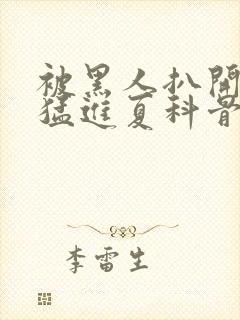 被黑人扒開
猛進夏科骨
李雷生